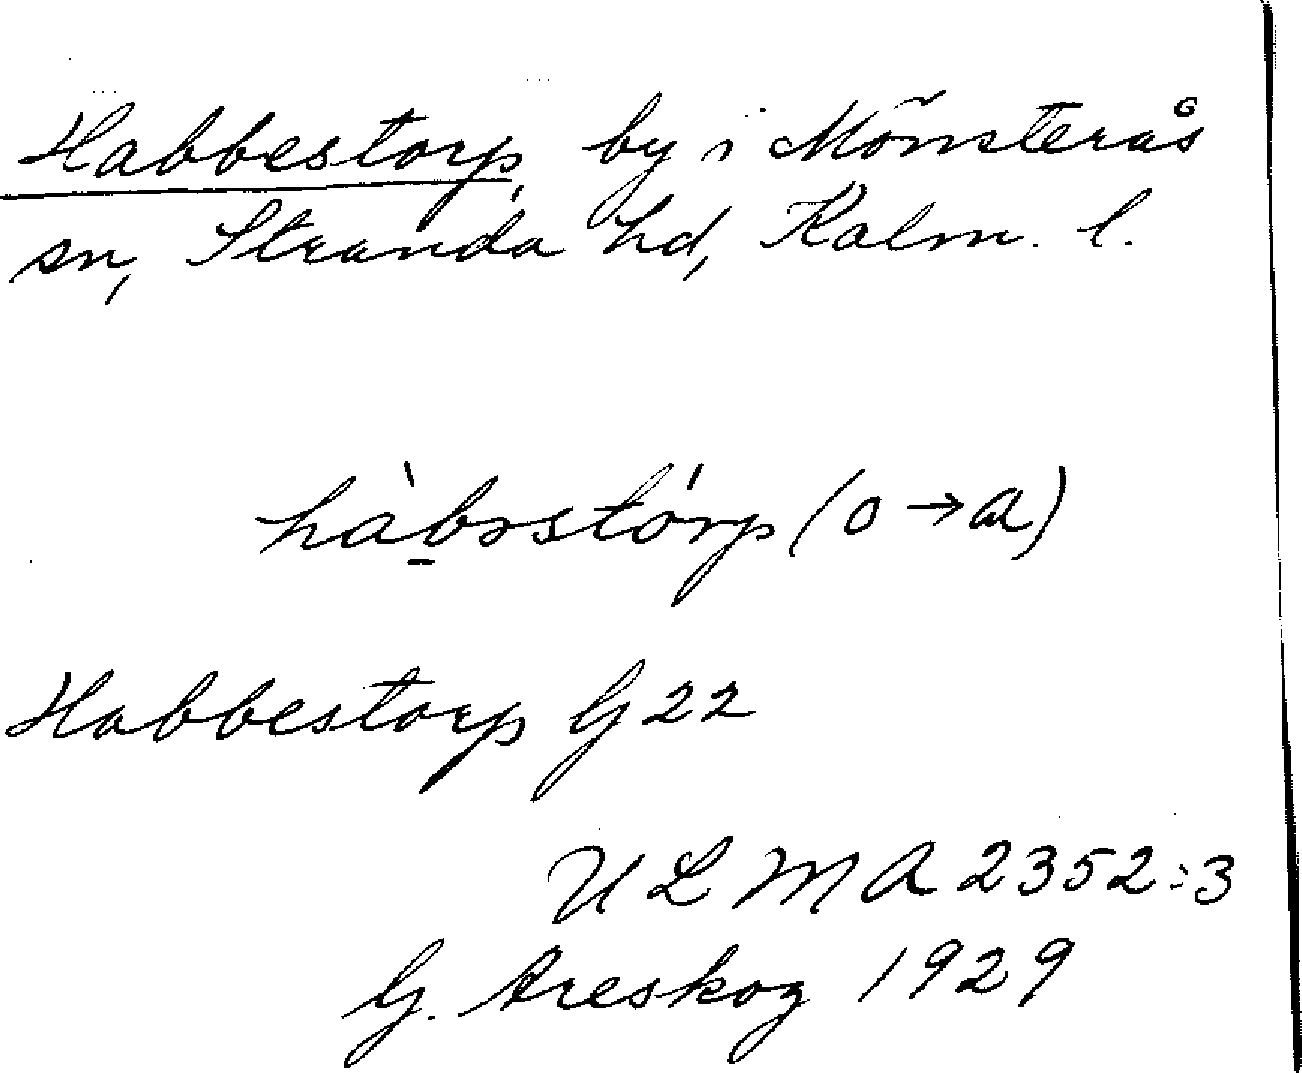 Habbestorp, by i Mönsterås
sn, Stranda hd, Kalm. l.
hàb̠əstórp (o → a)
Habbestorp G 22
ULMA 2352:3
G. Areskog 1929